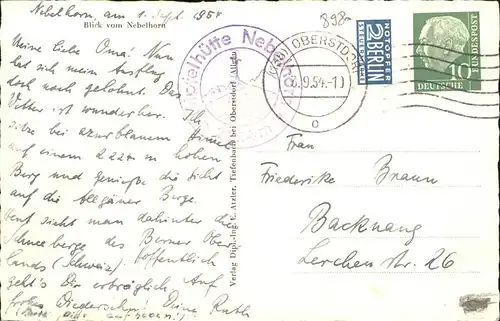 Nebelhorn, am 1. Sept. 1954
Blick vom Nebelhorn
898
Meine liebe Oma! Nun
hat sich mein Ausflug
doch noch gelohnt. Das
Wetter ist wunderbar. Ich
sitze bei azurblauem Himmel
auf einem 2224 m hohen
Berg und genieße die Sicht
auf die Allgäuer Berge.
sieht man dahinter die
Schneeberge des Berner Ober-
lands (Schweiz). Hoffentlich
geht's Dir erträglich. Auf
frohes Wiedersehn! Deine Ruth
(bitte auf)
Verlag Dipl.-Ing. E. Atzler, Tiefenbach bei Oberstdorf/Allgäu
Edmund-Probst
(13b) OBERSTDORF
.9.54.-1
NOTOPFER
2 BERLIN
STEUERMARKE
DEUTSCHE BUNDESPOST
10
Frau
Friederike Braun
Backnang
Lerchenstr. 26